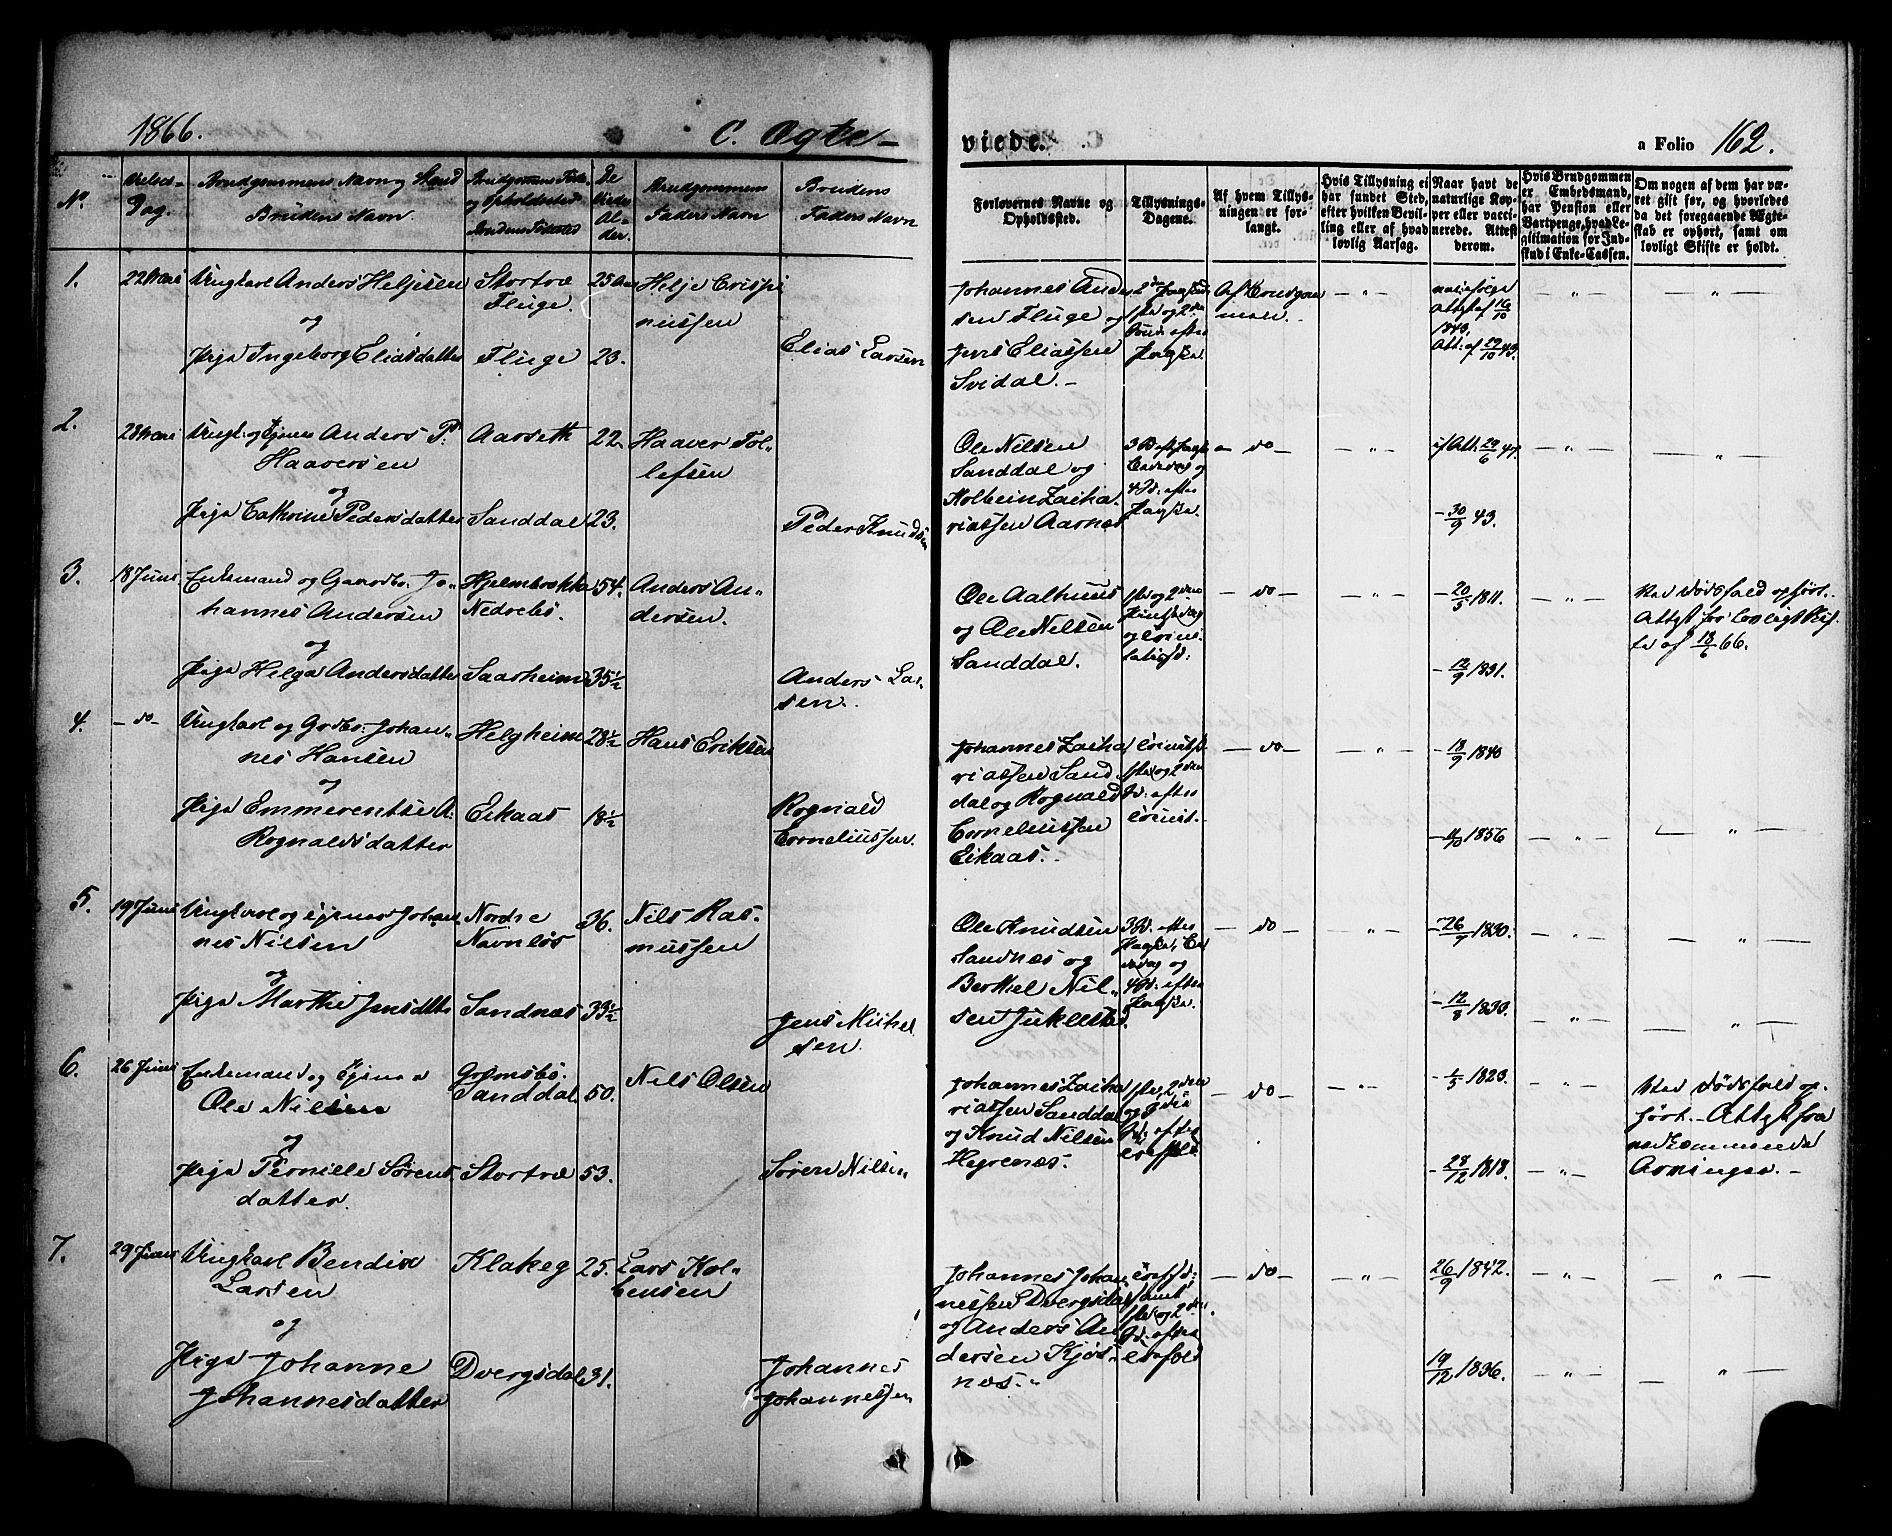 1866.
C. Ægte-
viede.
a Folio 162.
No.
Vielses-
Dag.
Brudgommens Navn og Stand
Brudens Navn.
Brudgommens
og Opholdssted
De
Viedes
Al-
der.
Brudgommens
Faders Navn
Brudens
Faders Navn
Forlovernes Navne og
Opholdssted.
Tillysnings-
Dagene.
Af hvem Tillys-
ningen er for-
langt.
Hvis Tillysning ei
har fundet Sted,
efter hvilken Bevil-
ling eller af hvad
lovlig Aarsag.
Naar havt de
naturlige Kop-
per eller vacci-
nerede. Attest
derom.
Hvis Brudgommen
er Embedsmand,
har Pension eller
Vartpenge, hvad Le-
gitimation for Ind-
skud i Enke-Cassen.
Om nogen af dem har væ-
ret gift før, og hvorledes
da det foregaaende Ægte-
skab er ophørt, samt om
lovligt Skifte er holdt.
1.
Ungkarl Anders Heljesen
og
Pige Ingeborg Eliasdatter
Stortræ
Fluge.
Fluge
25
23.
Helje Crispi
nussen
Elias Larsen
Johannes Ander
sen Fluge og
Jens Eliassen
Svidal.-
Af Brudgom
men.
2.
Anders P.
Haaversen
og
Pige Cathrine Pedersdatter
Aarseth
Sanddal
22.
23.
Haaver Tol-
lefsen
Peder Knudsen
Ole Nilsen
Sanddal og
Kolbein Zacha
riassen Aarnes
- do -
30/9 43.
3.
18 Juni
Enkemand og Gaardbr. Jo-
hannes Andersen
og
Pige Helga Andersdatter
Hjelmbrekke
Nedrebø.
Saarheim
54.
35½
Anders An-
dersen.
Anders Lar-
sen.
Ole Aalhuus
og Ole Nilsen
Sanddal.
- do -
- 20/5 1811.
- 12/9 1831.
Ved Dødsfald ophørt.
Attest for lovligt Skif-
te af 18/6 66.
4.
- do -
Ungkarl og Grdbr. Johan-
nes Hansen
og
Pige Emmerentse A.
Rognaldsdatter
Helgheim
Eikaas
28½
18½
Hans Eriksen
Rognald
Corneliussen.
Johannes Zacha
riassen Sand
dal og Rognald
Corneliussen
Eikaas.
- do -
- 18/9 1840
1856
5.
19 Juni
Ungkarl og Johan
nes Nilsen
og
Pige Marthe Jensdtter
Nordre
Navnløs
Sandnæs
36.
33½
Nils Ras-
mussen
Jens Michel
sen.
Ole Knudsen
Sandnæs og
Berthel Nil-
sen Juklestad.
- do -
- 26/9 1830.
- 12/8 1833.
6.
26 Juni
Enkemand og
Ole Nilsen
og
Pige Pernille Sørens
datter.
Sanddal
Stortræ
50.
53.
Nils Olsen
Søren Nilsen
Johannes Zacha
riassen Sanddal
og Knud Nilsen
Hegrenæs.
- do -
1/5 1823.
- 28/12 1818.
Ved Dødsfald op-
hørt.- Attest fra
vedkommende
Arvinger.-
7.
29 Juni
Ungkarl Bendix
Larsen
og
Pige Johanne
Johannesdatter
Klakeg
Dvergsdal
25.
31.
Lars Kol-
bensen
Johannes
Johannessen
Johannes Johan
nessen Dvergsdal
og Anders An
dersen Kjøs-
næs.
- do -
26/9 1842.
19/12 1836.